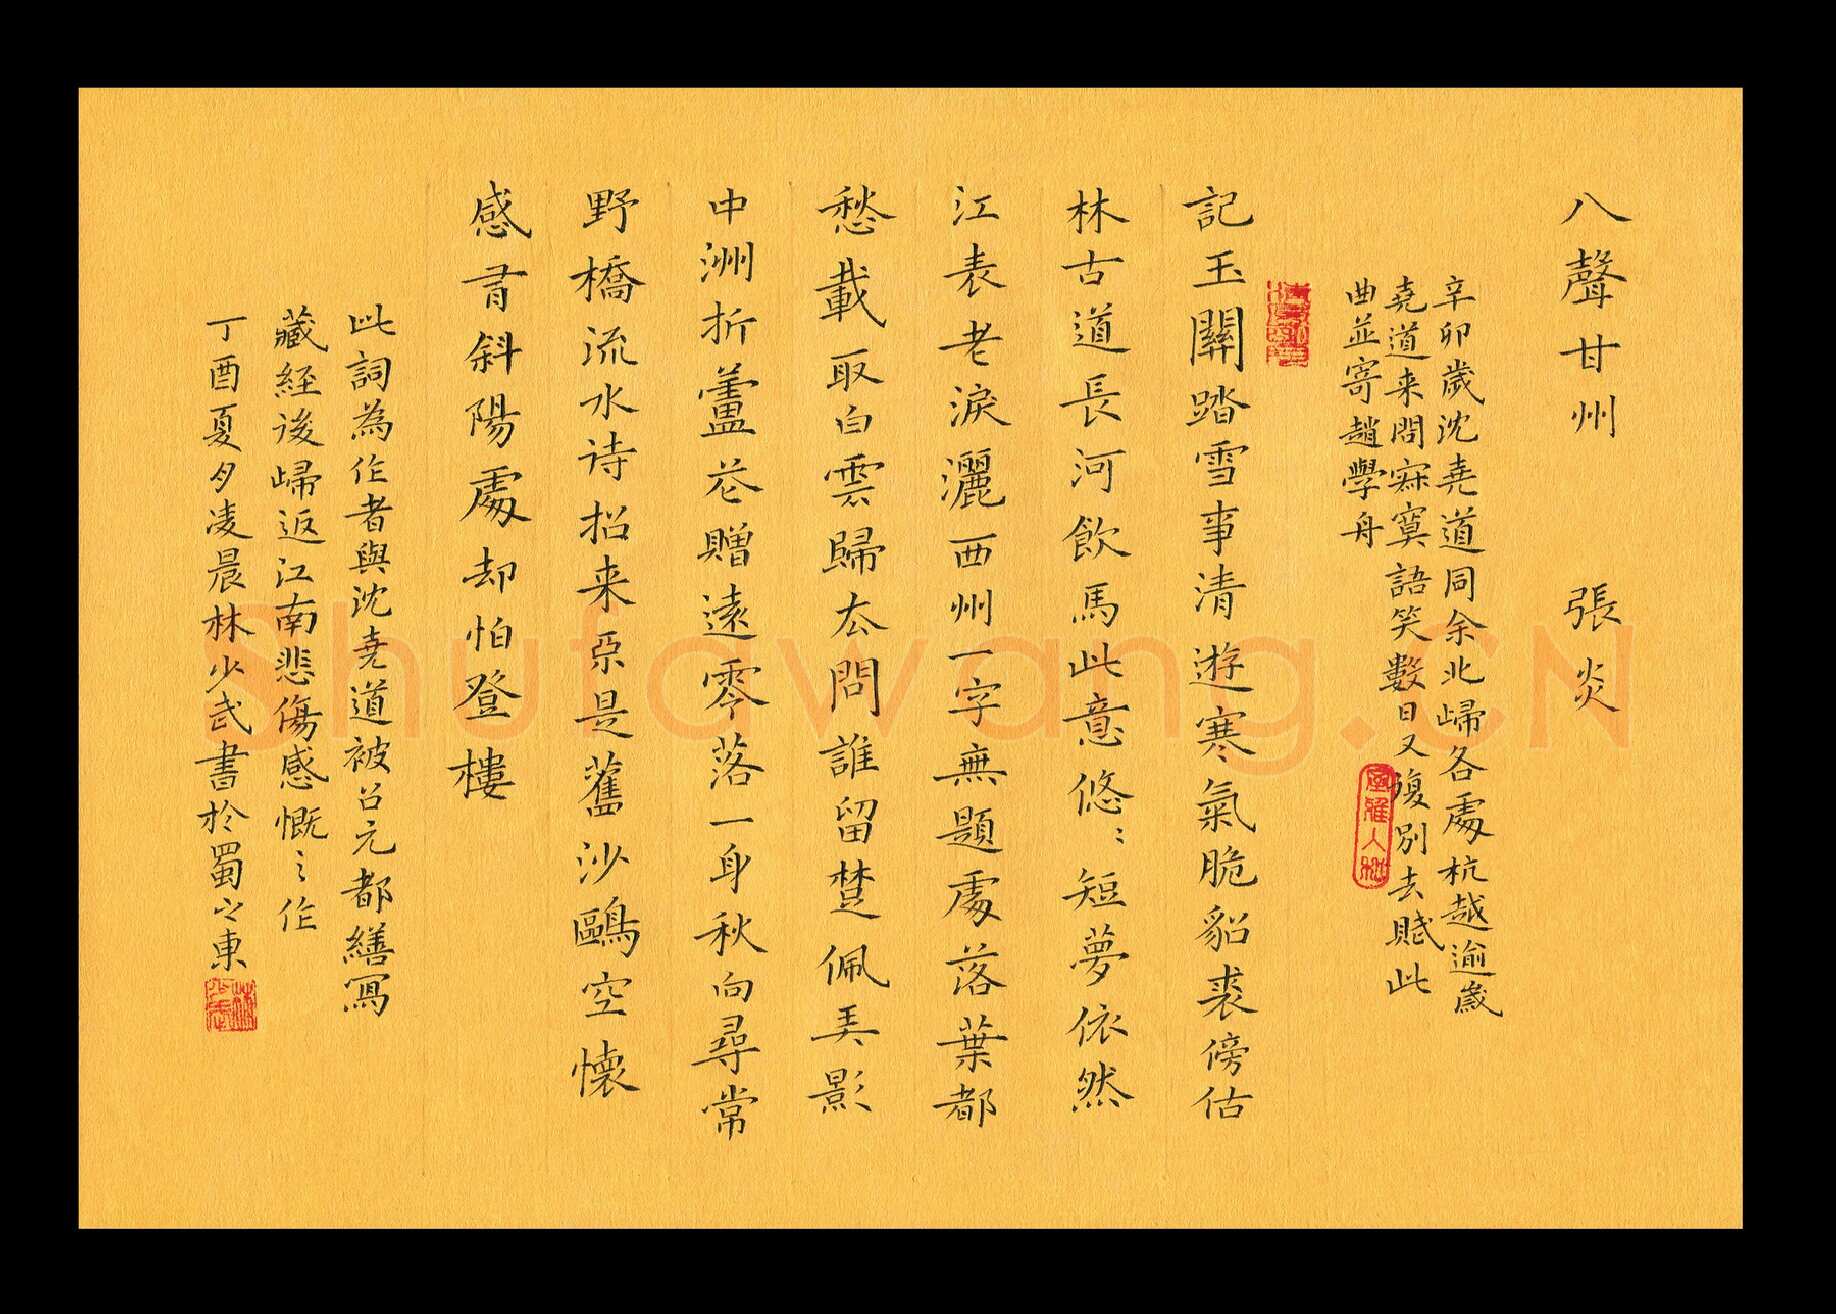 八聲甘州　張炎
辛卯歲沈堯道同余北歸各處杭越逾歲
堯道来問寂寞語笑數日又復別去賦此
曲並寄趙學舟
記玉關踏雪事清遊寒氣脆貂裘傍估
林古道長河飲馬此意悠〻短夢依然
江表老淚灑西州一字無題處落葉都
愁載取白雲歸去問誰留楚佩弄影
中洲折蘆花贈遠零落一身秋向尋常
野橋流水诗招来不是舊沙鷗空懷
感有斜陽處却怕登樓
此詞為作者與沈堯道被召元都繕寫
藏經後歸返江南悲傷感慨之作
丁酉夏月凌晨林少武書於蜀之東
Shufawang.CN